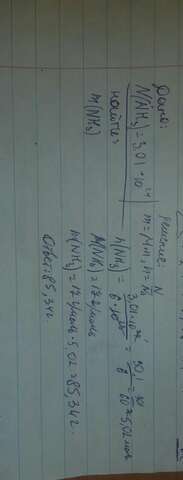 Дано:
N(NH₃) = 3,01 · 10²⁴
найти:
m(NH₃)
Решение:
m = M · n, n = N/Nₐ
n(NH₃) = 3,01 · 10²⁴ / 6 · 10²³ = 30,1 / 6 = 5,02 моль
M(NH₃) = 17 г/моль
m(NH₃) = 17 г/моль · 5,02 = 85,34 г.
Ответ: 85,34 г.